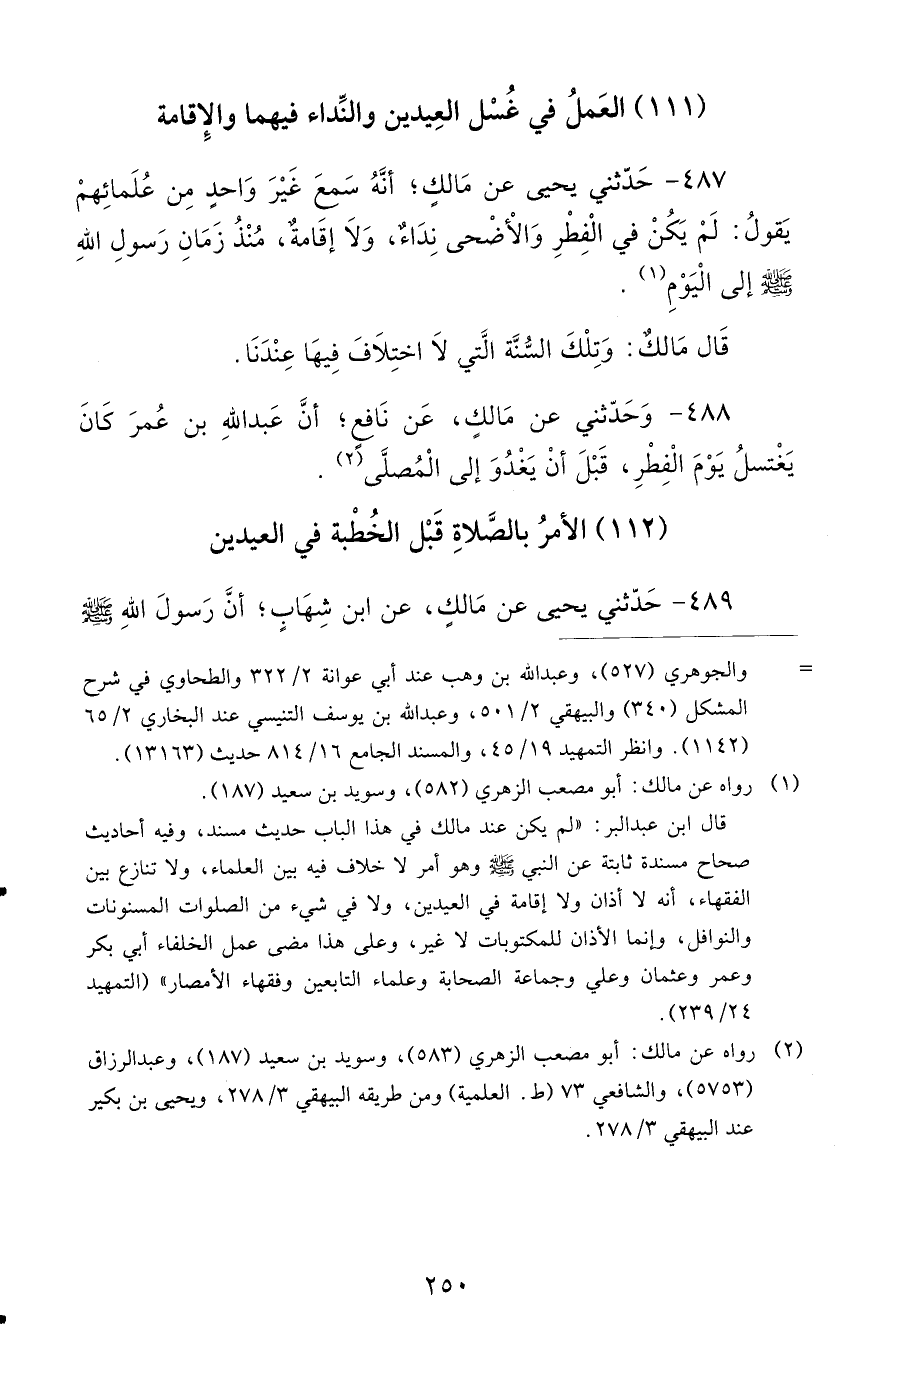 (١١١) العَملُ في غُسْل العِيدين والنِّداء فيهما والإِقامة
٤٨٧- حَدّثني يحيى عن مَالكٍ؛ أنَّهُ سَمِعَ غَيْرَ وَاحدٍ مِن عُلمائِهمْ
يَقولُ: لَمْ يَكُنْ في الْفِطْرِ وَالْأضْحى نِدَاءٌ، وَلَا إقامةٌ، مُنْذُ زَمَانِ رَسولِ اللهِ
ﷺ إلى الْيَوْمِ(١) .
قَال مَالكٌ: وَتِلْكَ السُّنَّة الَّتي لاَ اختِلاَفَ فِيهَا عِنْدَنَا.
٤٨٨- وَحَدّثني عن مَالكٍ، عَن نَافعٍ؛ أنَّ عَبدالله بن عُمرَ كَانَ
يَغْتسلُ يَوْمَ الْفِطْرِ، قَبْلَ أنْ يَغْدُوَ إلى الْمُصلَّى(٢) .
(١١٢) الأمرُ بالصَّلاةِ قَبْل الخُطْبة في العيدين
٤٨٩- حَدّثني يحيى عن مَالكٍ، عن ابن شِهَابٍ؛ أنَّ رَسولَ اللهِ ﷺ
= والجوهري (٥٢٧)، وعبدالله بن وهب عند أبي عوانة ٢/ ٣٢٢ والطحاوي في شرح
المشكل (٣٤٠) والبيهقي ٢/ ٥٠١، وعبدالله بن يوسف التنيسي عند البخاري ٢/ ٦٥
(١١٤٢). وانظر التمهيد ١٩/ ٤٥، والمسند الجامع ١٦/ ٨١٤ حديث (١٣١٦٣).
(١) رواه عن مالك: أبو مصعب الزهري (٥٨٢)، وسويد بن سعيد (١٨٧).
قال ابن عبدالبر: «لم يكن عند مالك في هذا الباب حديث مسند، وفيه أحاديث
صحاح مسندة ثابتة عن النبي ﷺ وهو أمر لا خلاف فيه بين العلماء، ولا تنازع بين
الفقهاء، أنه لا أذان ولا إقامة في العيدين، ولا في شيء من الصلوات المسنونات
والنوافل، وإنما الأذان للمكتوبات لا غير، وعلى هذا مضى عمل الخلفاء أبي بكر
وعمر وعثمان وعلي وجماعة الصحابة وعلماء التابعين وفقهاء الأمصار» (التمهيد
٢٤/ ٢٣٩).
(٢) رواه عن مالك: أبو مصعب الزهري (٥٨٣)، وسويد بن سعيد (١٨٧)، وعبدالرزاق
(٥٧٥٣)، والشافعي ٧٣ (ط. العلمية) ومن طريقه البيهقي ٣/ ٢٧٨، ويحيى بن بكير
عند البيهقي ٣/ ٢٧٨.
٢٥٠